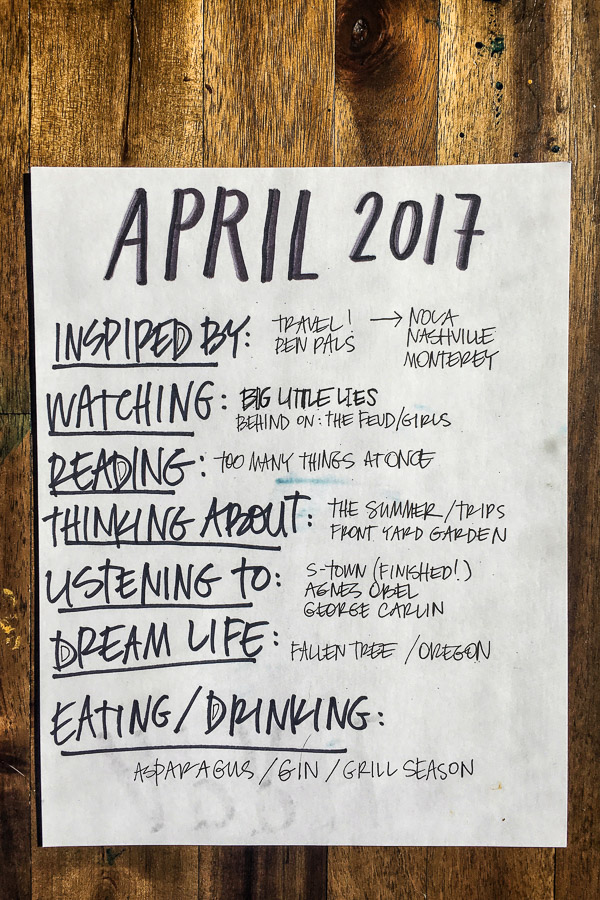 APRIL 2017
INSPIRED BY: TRAVEL! → NOLA
PEN PALS NASHVILLE
MONTEREY
WATCHING: BIG LITTLE LIES
BEHIND ON: THE FEUD/GIRLS
READING: TOO MANY THINGS AT ONCE
THINKING ABOUT: THE SUMMER/TRIPS
FRONT YARD GARDEN
LISTENING TO: S-TOWN (FINISHED!)
AGNES OBEL
GEORGE CARLIN
DREAM LIFE: FALLEN TREE / OREGON
EATING/DRINKING:
ASPARAGUS / GIN / GRILL SEASON